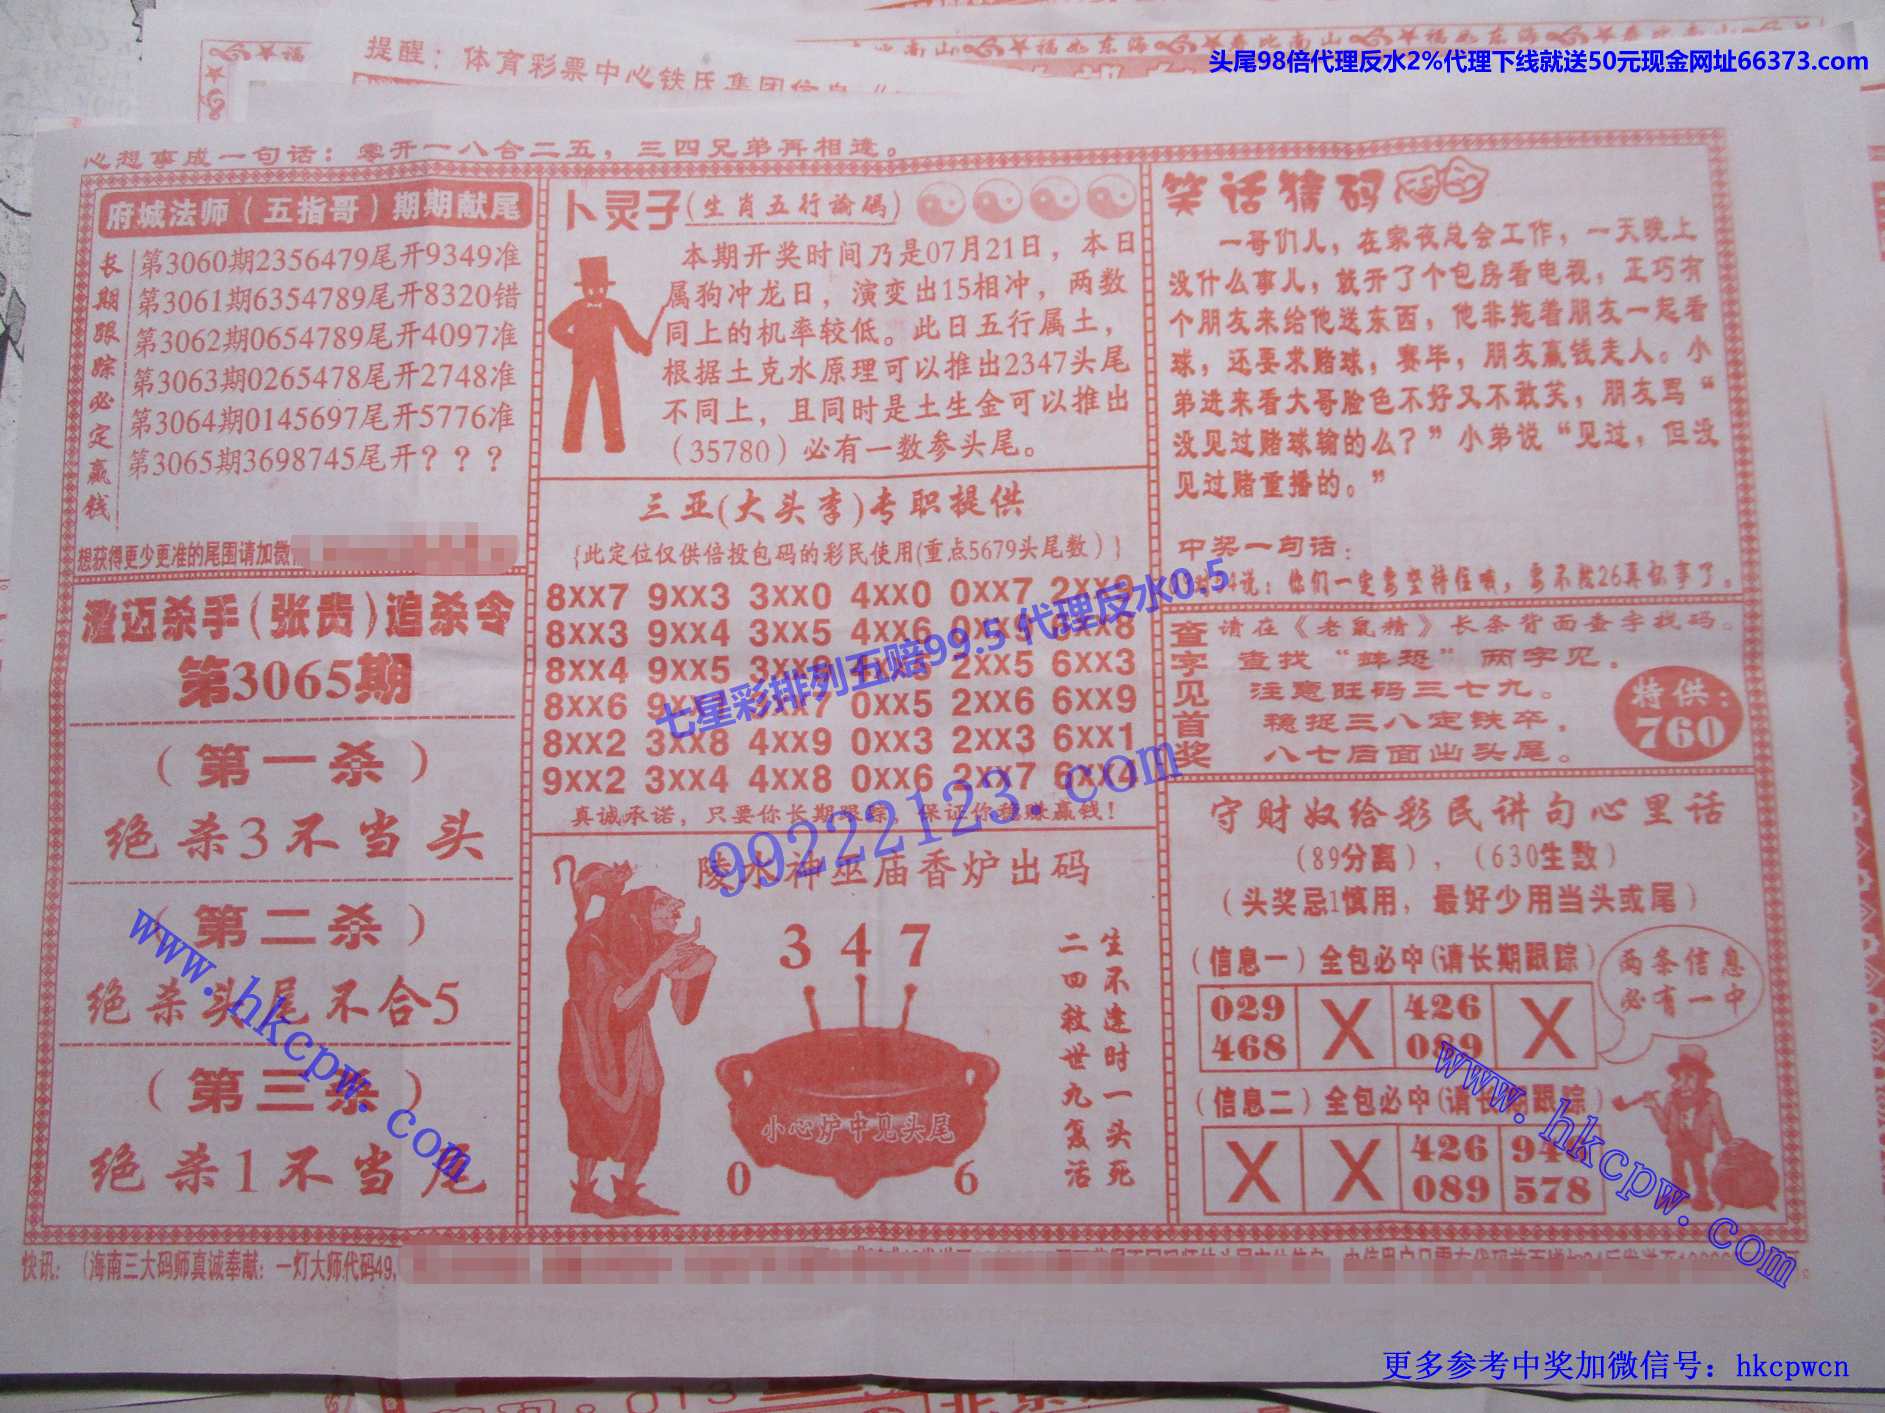 福如东海
头尾98倍代理反水2%代理下线就送50元现金网址66373.com
提醒：体育彩票中心铁氏集团信息
心想事成一句话：零开一八合二五，三四兄弟再相逢。
府城法师（五指哥）期期献尾
长期跟踪必定赢钱
第3060期2356479尾开9349准
第3061期6354789尾开8320错
第3062期0654789尾开4097准
第3063期0265478尾开2748准
第3064期0145697尾开5776准
第3065期3698745尾开？？？
想获得更少更准的尾围请加微
澄迈杀手（张贵）追杀令
第3065期
（第一杀）
绝杀3不当头
（第二杀）
绝杀头尾不合5
（第三杀）
绝杀1不当尾
卜灵子(生肖五行谕码)
本期开奖时间乃是07月21日，本日
属狗冲龙日，演变出15相冲，两数
同上的机率较低。此日五行属土，
根据土克水原理可以推出2347头尾
不同上，且同时是土生金可以推出
（35780）必有一数参头尾。
三亚(大头李)专职提供
{此定位仅供倍投包码的彩民使用(重点5679头尾数）}
8XX7 9XX3 3XX0 4XX0 0XX7 2XX9
8XX3 9XX4 3XX5 4XX6 0XX9
8XX4 9XX5 2XX5 6XX3
8XX6 0XX5 2XX6 6XX9
8XX2 3XX8 4XX9 0XX3 2XX3 6XX1
9XX2 3XX4 4XX8 0XX6 2XX7 6XX4
真诚承诺，只要你长期跟踪，保证你稳赚赢钱！
七星彩排列五赔99.5 代理反水0.5
99222123.com
陵水神巫庙香炉出码
3 4 7
小心炉中见头尾
0 6
生不逢时一头死
二四救世九复活
笑话猜码
一哥们儿，在家夜总会工作，一天晚上
没什么事儿，就开了个包房看电视，正巧有
个朋友来给他送东西，他非拖着朋友一起看
球，还要求赌球，赛毕，朋友赢钱走人。小
弟进来看大哥脸色不好又不敢笑，朋友骂“
没见过赌球输的么？”小弟说“见过，但没
见过赌重播的。”
中奖一句话：
说：你们一定要坚持住哦，要不然26真似事了。
查字见首奖
请在《老鼠精》长条背面查字找码。
查找“蚌恐”两字见，
注意旺码三七九。
稳捉三八定铁卒，
八七后面出头尾。
特供：
760
守财奴给彩民讲句心里话
（89分离），（630生数）
（头奖忌1慎用，最好少用当头或尾）
（信息一）全包必中(请长期跟踪）
029 X 426 X
468 089
两条信息
必有一中
（信息二）全包必中(请长期跟踪）
X X 426
089 578
www.hkcpw.com
www.hkcpw.com
快讯：（海南三大码师真诚奉献：一灯大师代码49，
更多参考中奖加微信号：hkcpwcn